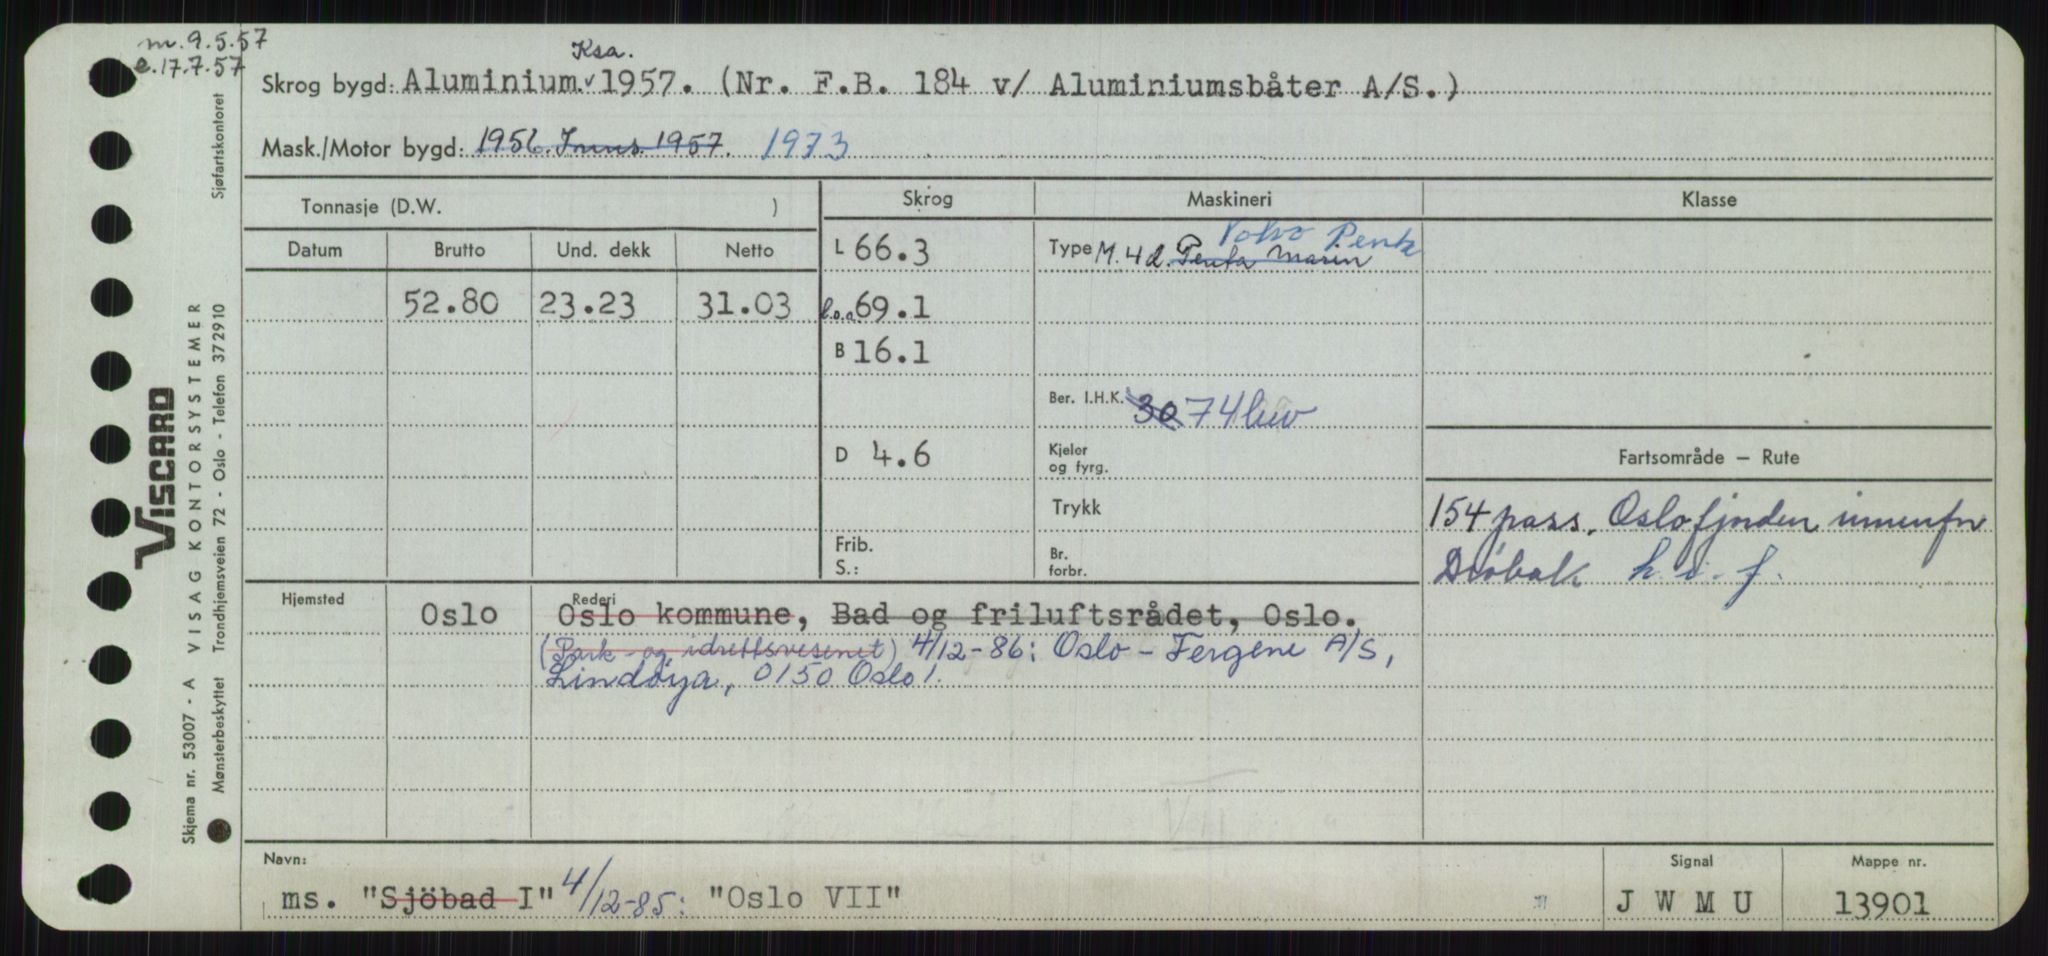 m. 9.5.57
e. 17.7.57
Ksa.
Skrog bygd: Aluminium. 1957. (Nr. F.B. 184 v/ Aluminiumsbåter A/S.)
Mask./Motor bygd: 1956. Inns. 1957. 1973
Tonnasje (D.W. )
Skrog
Maskineri
Klasse
Datum Brutto Und. dekk Netto
L 66.3
Volvo Penta
Type M. 4 d. Penta Marin
52.80 23.23 31.03
l.o.a 69.1
B 16.1
Ber. I.H.K. 30 74 bev
D 4.6
Kjeler
og fyrg.
Trykk
Frib.
S.:
Br.
forbr.
Fartsområde — Rute
154 pass. Oslofjorden innenfor
Drøbak h. i. f.
Hjemsted
Rederi
Oslo Oslo kommune, Bad og friluftsrådet, Oslo.
(Park og idrettsvesenet) 4/12-86: Oslo-Fergene A/S,
Lindøya, 0150 Oslo 1.
Navn:
ms. "Sjöbad I" 4/12-85: "Oslo VII"
Signal
J W M U
Mappe nr.
13901
VISCARD
VISAG KONTORSYSTEMER
Skjema nr. 53007 - A
Mønsterbeskyttet Trondhjemsveien 72 - Oslo - Telefon 372910
Sjøfartskontoret